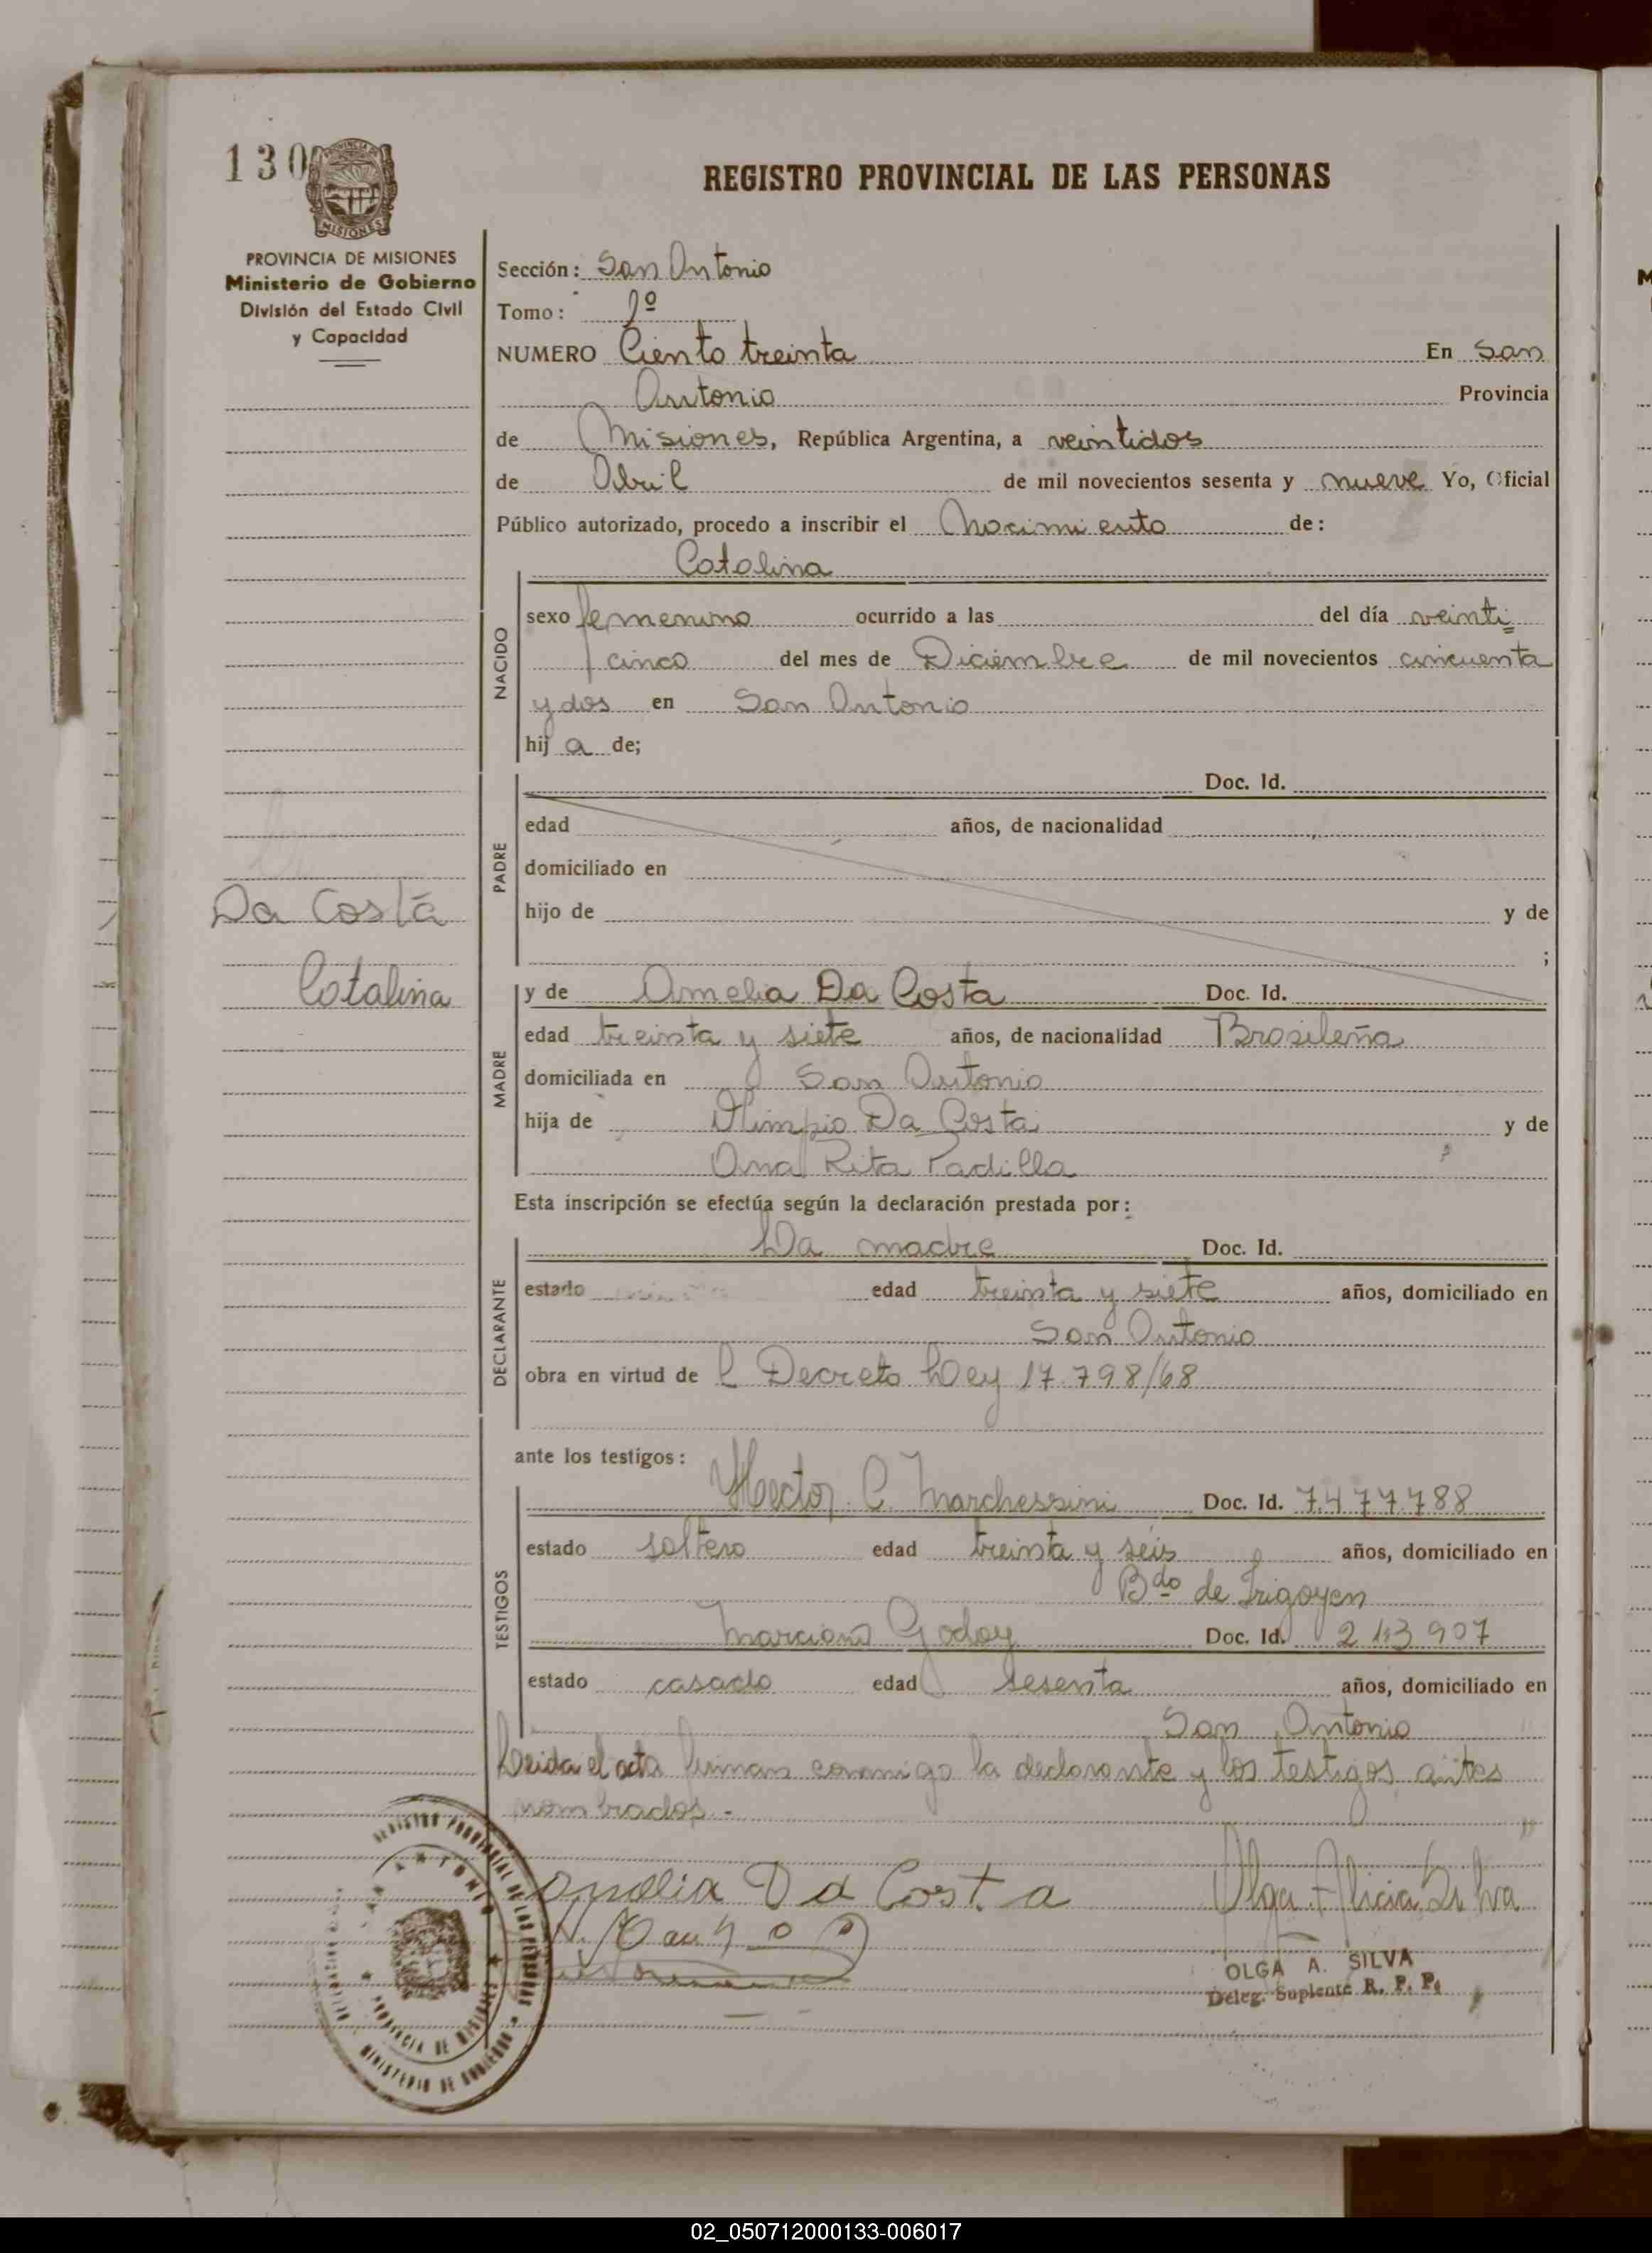 130
PROVINCIA DE MISIONES
Ministerio de Gobierno
División del Estado Civil
y Capacidad
REGISTRO PROVINCIAL DE LAS PERSONAS
Sección: San Antonio
Tomo: 1º
NUMERO Ciento treinta En San
Antonio Provincia
de Misiones, República Argentina, a veintidos
de Abril de mil novecientos sesenta y nueve Yo, Oficial
Público autorizado, procedo a inscribir el Nacimiento de:
Catalina
NACIDO
sexo femenino ocurrido a las del día veinti
cinco del mes de Diciembre de mil novecientos cincuenta
y dos en San Antonio
hij a de;
PADRE
Doc. Id.
edad años, de nacionalidad
domiciliado en
hijo de y de
;
Da Costa
Catalina
MADRE
y de Amelia Da Costa Doc. Id.
edad treinta y siete años, de nacionalidad Brasileña
domiciliada en San Antonio
hija de Olimpio Da Costa y de
Ana Rita Padilla
Esta inscripción se efectúa según la declaración prestada por:
DECLARANTE
La madre Doc. Id.
estado edad treinta y siete años, domiciliado en
San Antonio
obra en virtud de l Decreto Ley 17.798/68
ante los testigos:
TESTIGOS
Hector C. Marchessini Doc. Id. 7.477.788
estado soltero edad treinta y seis años, domiciliado en
Bdo de Irigoyen
Marciano Godoy Doc. Id.
estado casado edad sesenta años, domiciliado en
San Antonio
Leida el acta firman conmigo la declarante y los testigos antes
nombrados.-
Da Costa
Olga Alicia Silva
OLGA A. SILVA
Deleg. Suplente R. P. P.
REGISTRO PROVINCIAL DE LAS PERSONAS
MINISTERIO DE GOBIERNO
PROVINCIA DE MISIONES
02_050712000133-006017